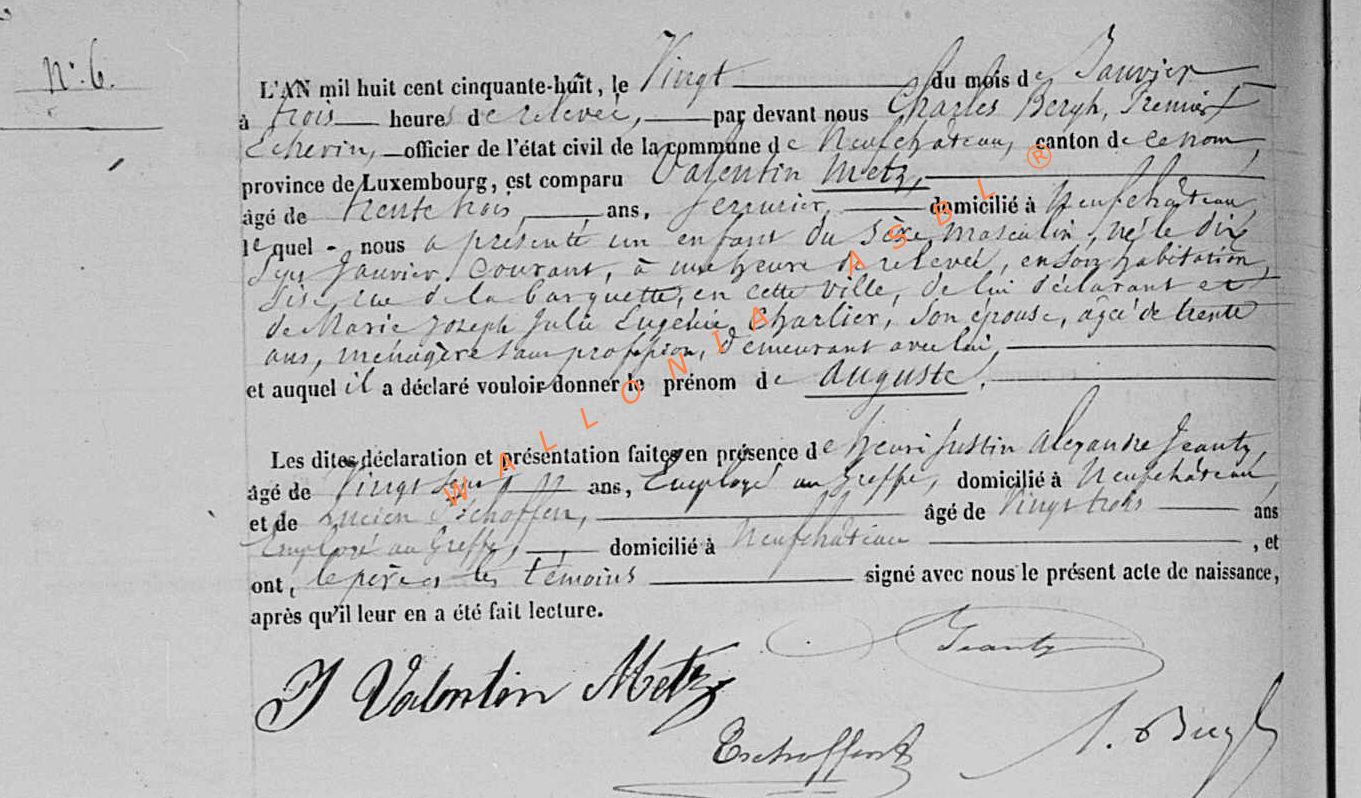 N°. 6.
L'AN mil huit cent cinquante-huit, le Vingt du mois de Janvier
à trois heures de relevée, par devant nous Charles Bergh, Premier
Echevin, officier de l'état civil de la commune de Neufchâteau, canton de ce nom,
province de Luxembourg, est comparu Valentin Metz,
âgé de trente trois ans, serrurier, domicilié à Neufchâteau,
lequel nous a présenté un enfant du sexe masculin, né le dix
sept Janvier courant, à une heure de relevée, en son habitation,
sise rue de la barquette, en cette ville, de lui déclarant et
de Marie Joseph Julie Eugénie Charlier, son épouse, âgée de trente
ans, ménagère sans profession, demeurant avec lui,
et auquel il a déclaré vouloir donner le prénom de Auguste.
Les dites déclaration et présentation faites en présence de henri Justin Alexandre Jeanty,
âgé de Vingt ans, Employé au Greffe, domicilié à Neufchâteau,
et de Lucien Tschoffen, âgé de Vingt trois ans
Employé au Greffe, domicilié à Neufchâteau, et
ont, le père et les témoins signé avec nous le présent acte de naissance,
après qu'il leur en a été fait lecture.
Jeanty
J Valentin Metz
Tschoffen
WALLONIA ASBL ®